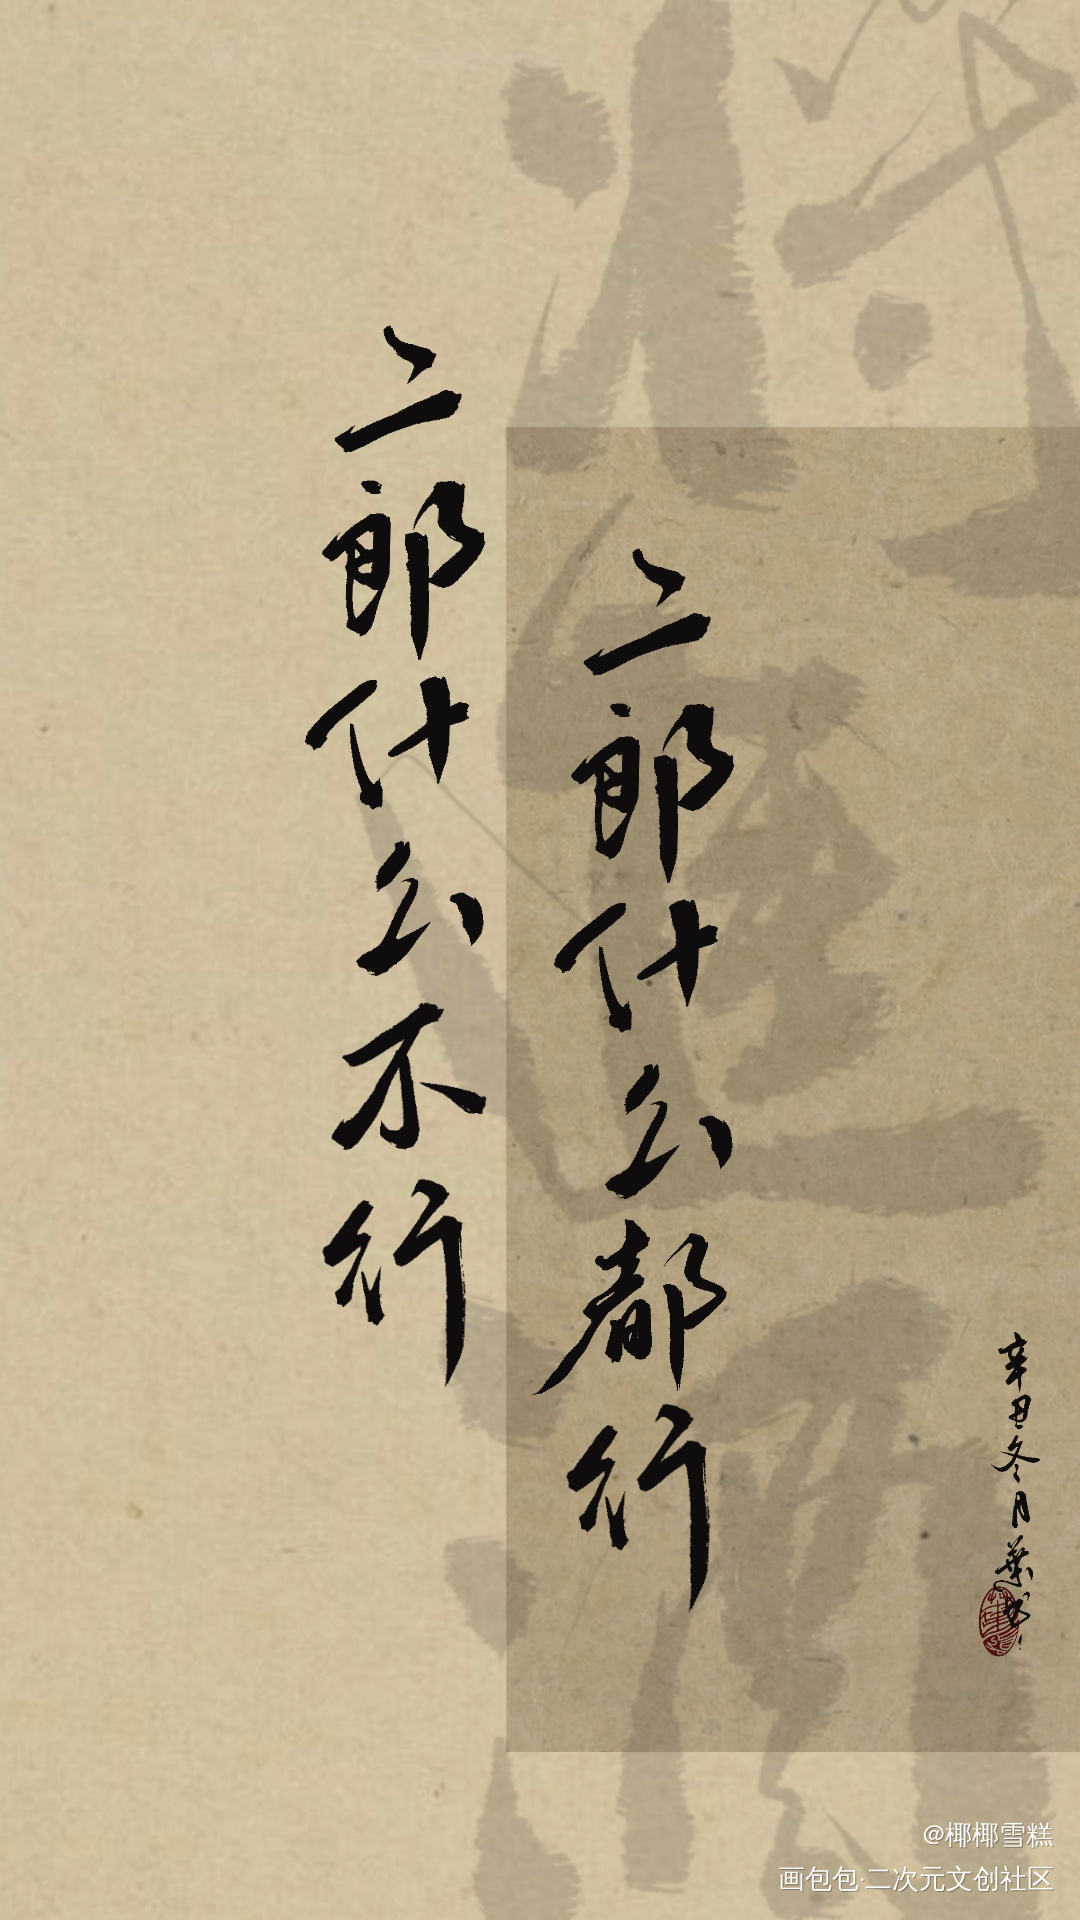 二郎什么都行
二郎什么不行
辛丑冬月葉书
@椰椰雪糕
画包包·二次元文创社区